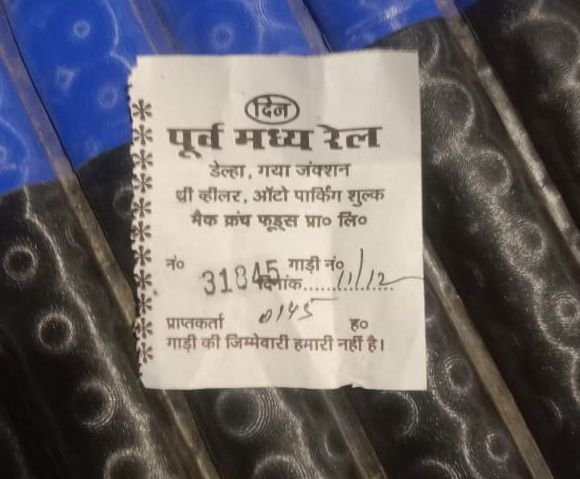 दिन
पूर्व मध्य रेल
डेल्हा, गया जंक्शन
थ्री व्हीलर, ऑटो पार्किंग शुल्क
मैक क्रंच फूड्स प्रा० लि०
नं० 31845 गाड़ी नं०
दिनांक.....11/12.....
0145
प्राप्तकर्ता ह०
गाड़ी की जिम्मेवारी हमारी नहीं है।